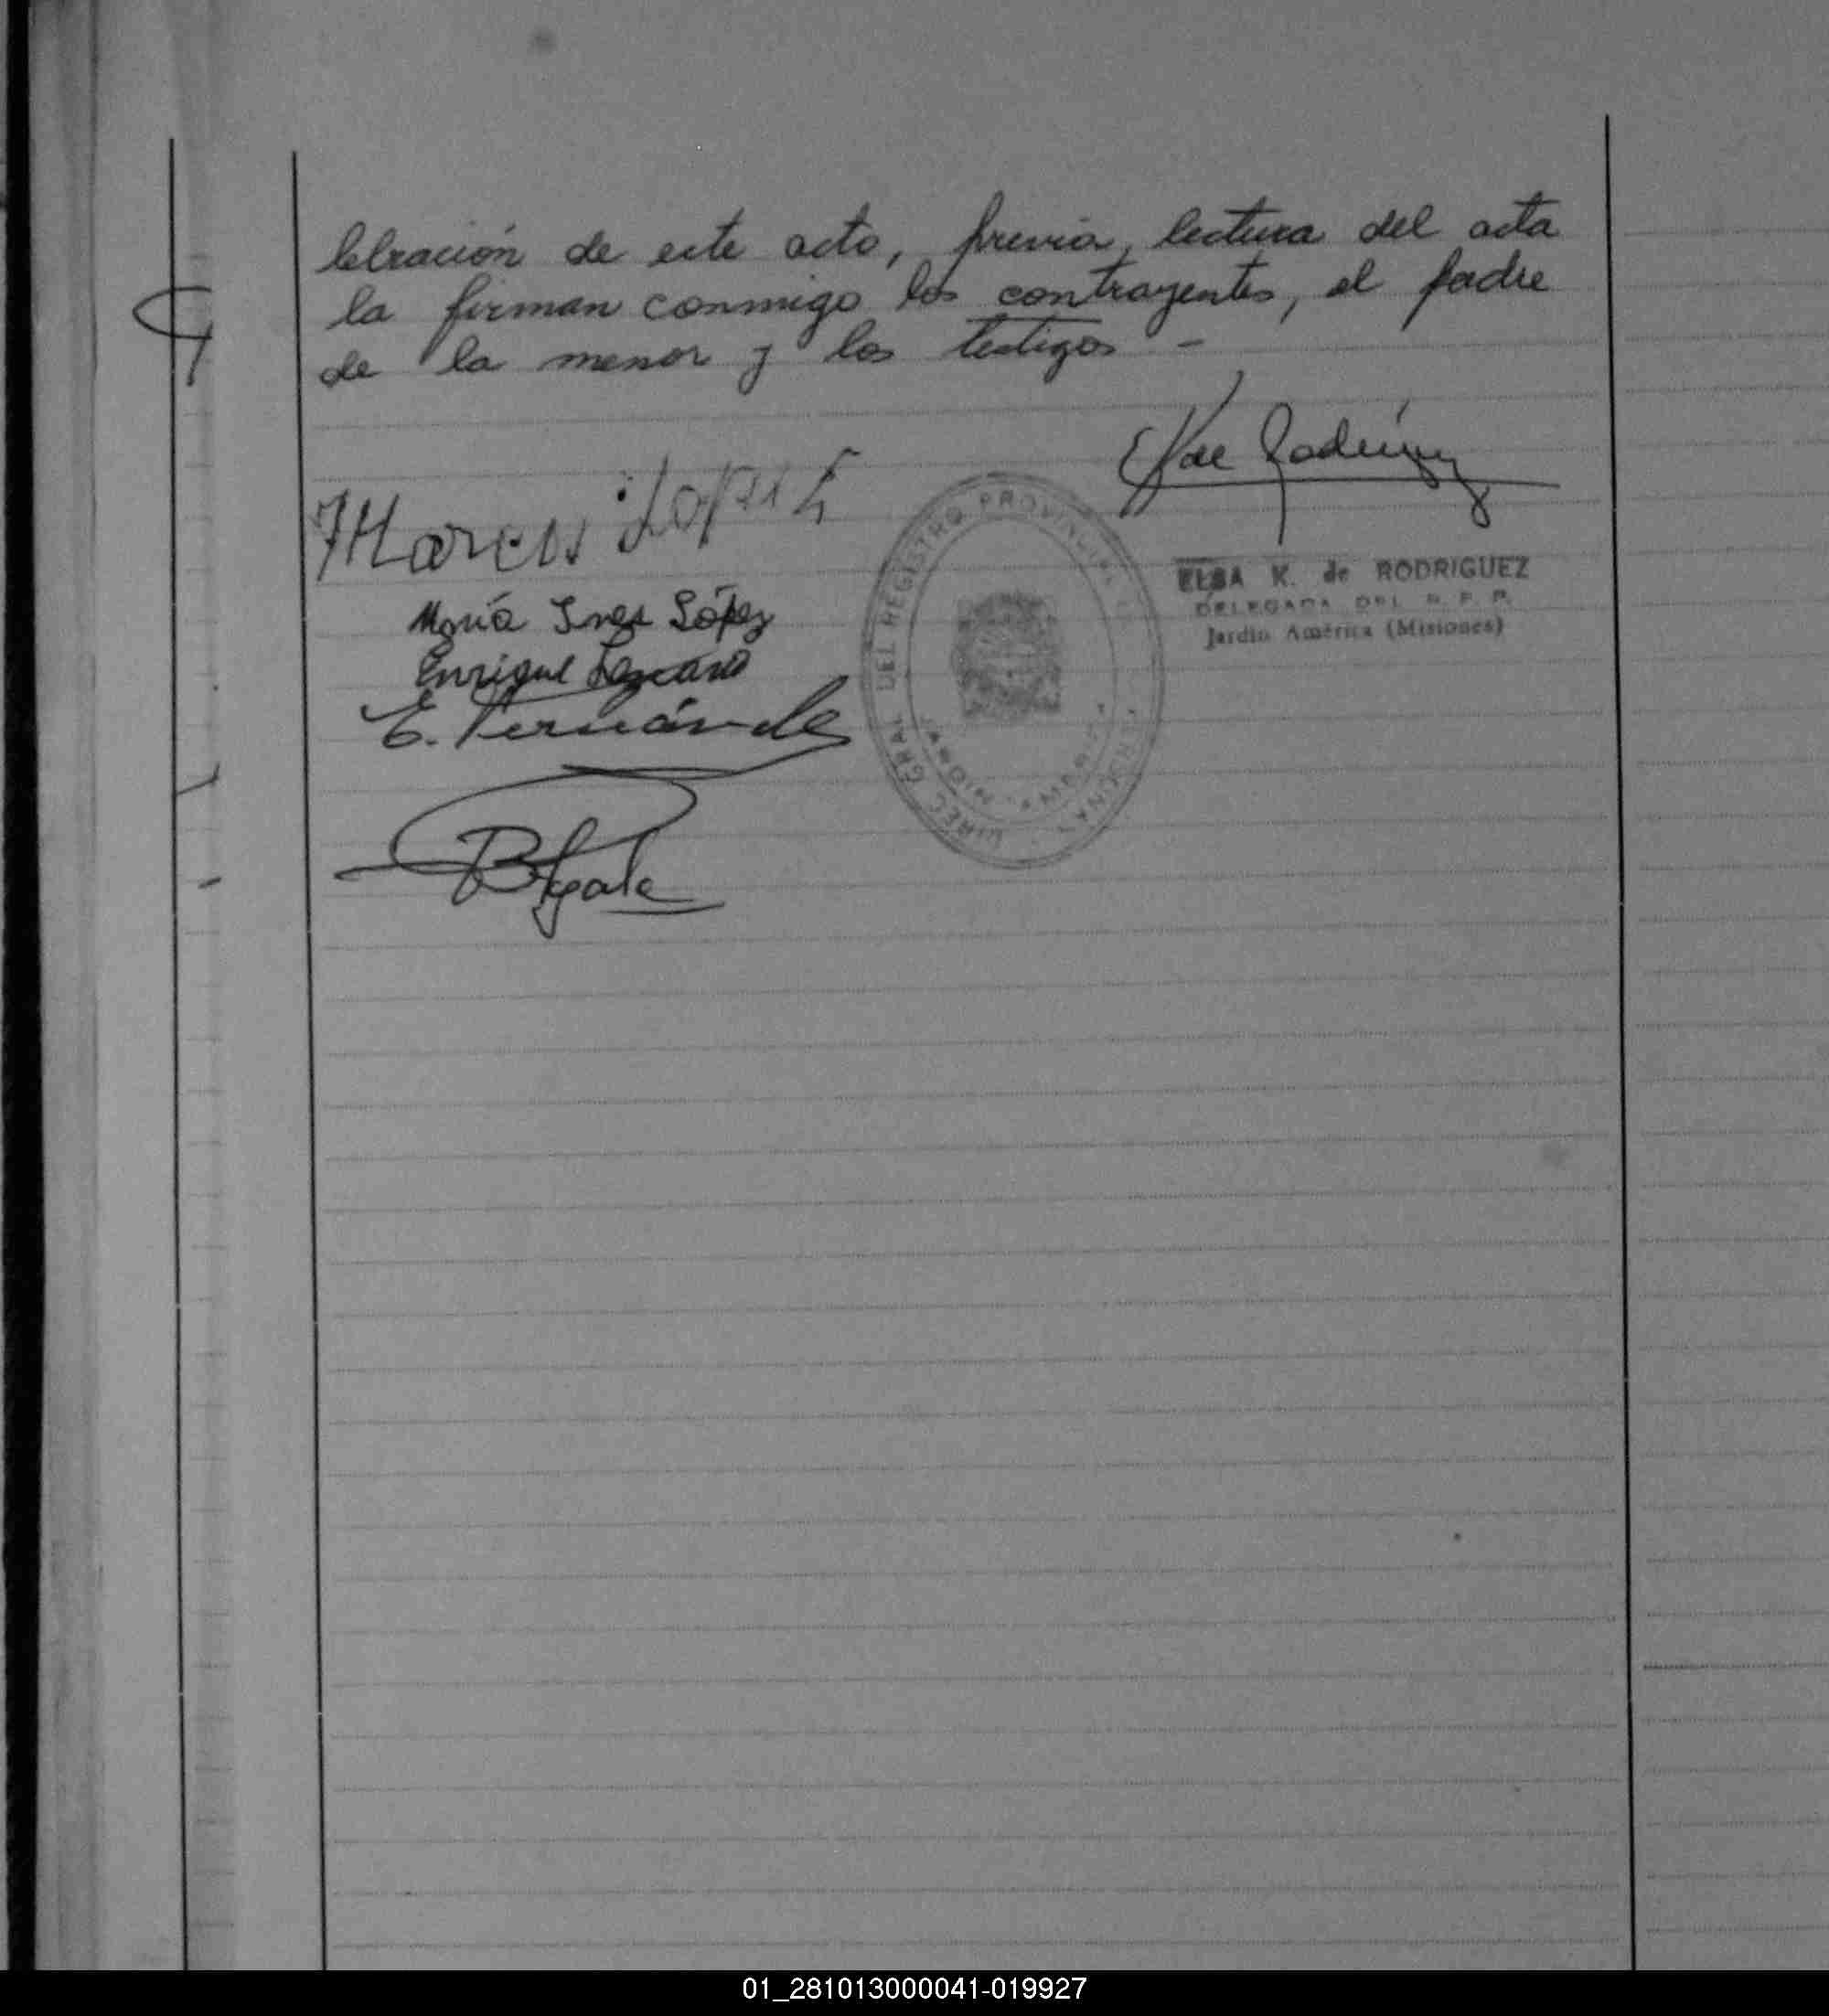 lebración de este acto, previa, lectura del acta
la firman conmigo los contrayentes, el padre
de la menor y los testigos -
E K de Rodríguez
Marcos Lopez
María Ines López
Enrique Lezcano
E. Fernández
DIREC. GRAL. DEL REGISTRO PROVINCIAL
JARDIN AMERICA
ELBA K. de RODRIGUEZ
DELEGADA DEL R. P. P.
Jardín América (Misiones)
01_281013000041-019927